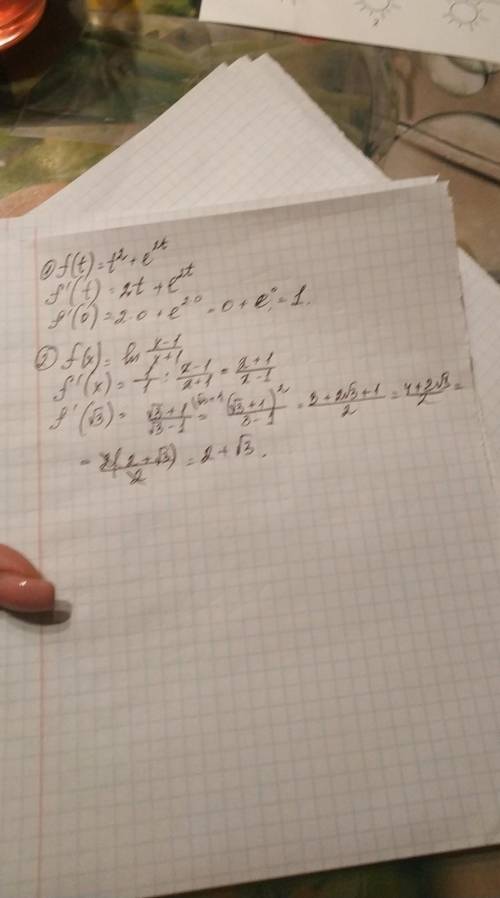 ① f(t) = t² + e^{2t}
f'(t) = 2t + e^{2t}
f'(0) = 2·0 + e^{2·0} = 0 + e⁰ = 1.
② f(x) = ln \frac{x-1}{x+1}
f'(x) = \frac{1}{1} : \frac{x-1}{x+1} = \frac{x+1}{x-1}
f'(√3) = \frac{√3+1}{√3-1} ^{\√3+1} = \frac{(√3+1)²}{3-1} = \frac{3+2√3+1}{2} = \frac{4+2√3}{2} =
= \frac{2(2+√3)}{2} = 2+√3.